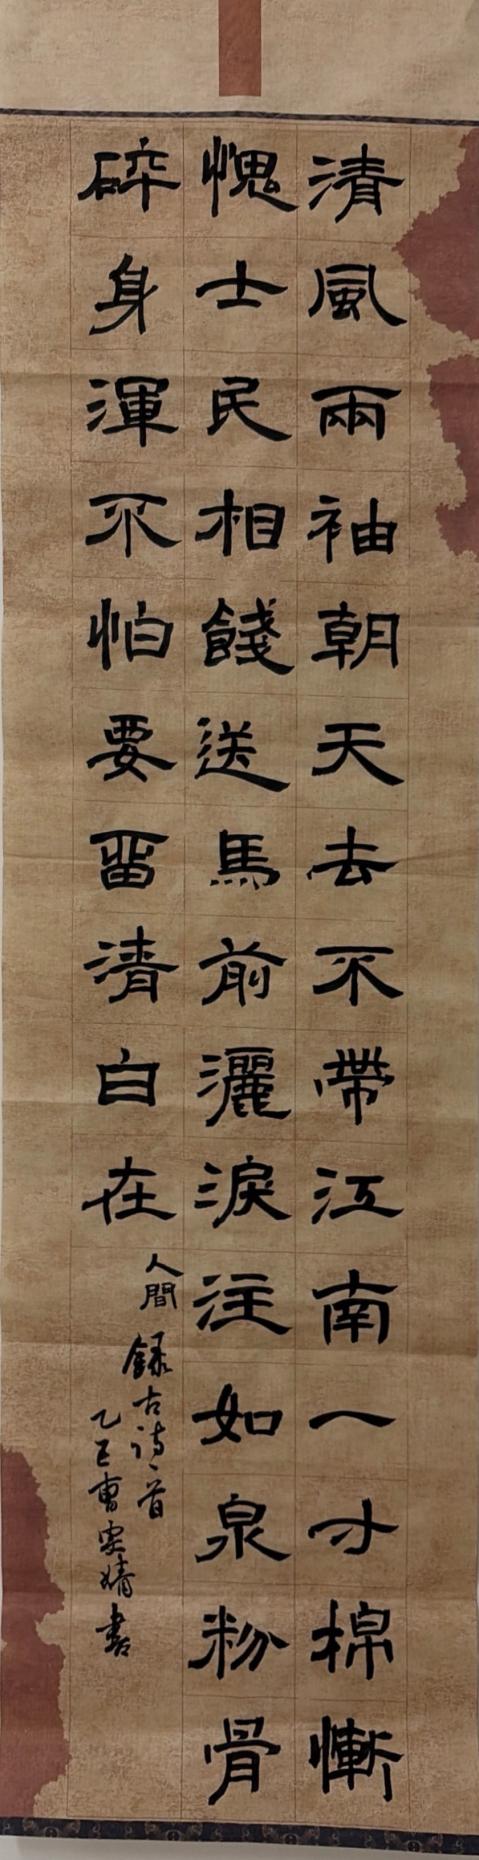 清風兩袖朝天去不帶江南一寸棉慚
愧士民相餞送馬前灑淚注如泉粉骨
碎身渾不怕要留清白在
人間 錄古詩二首
乙巳曹婧書